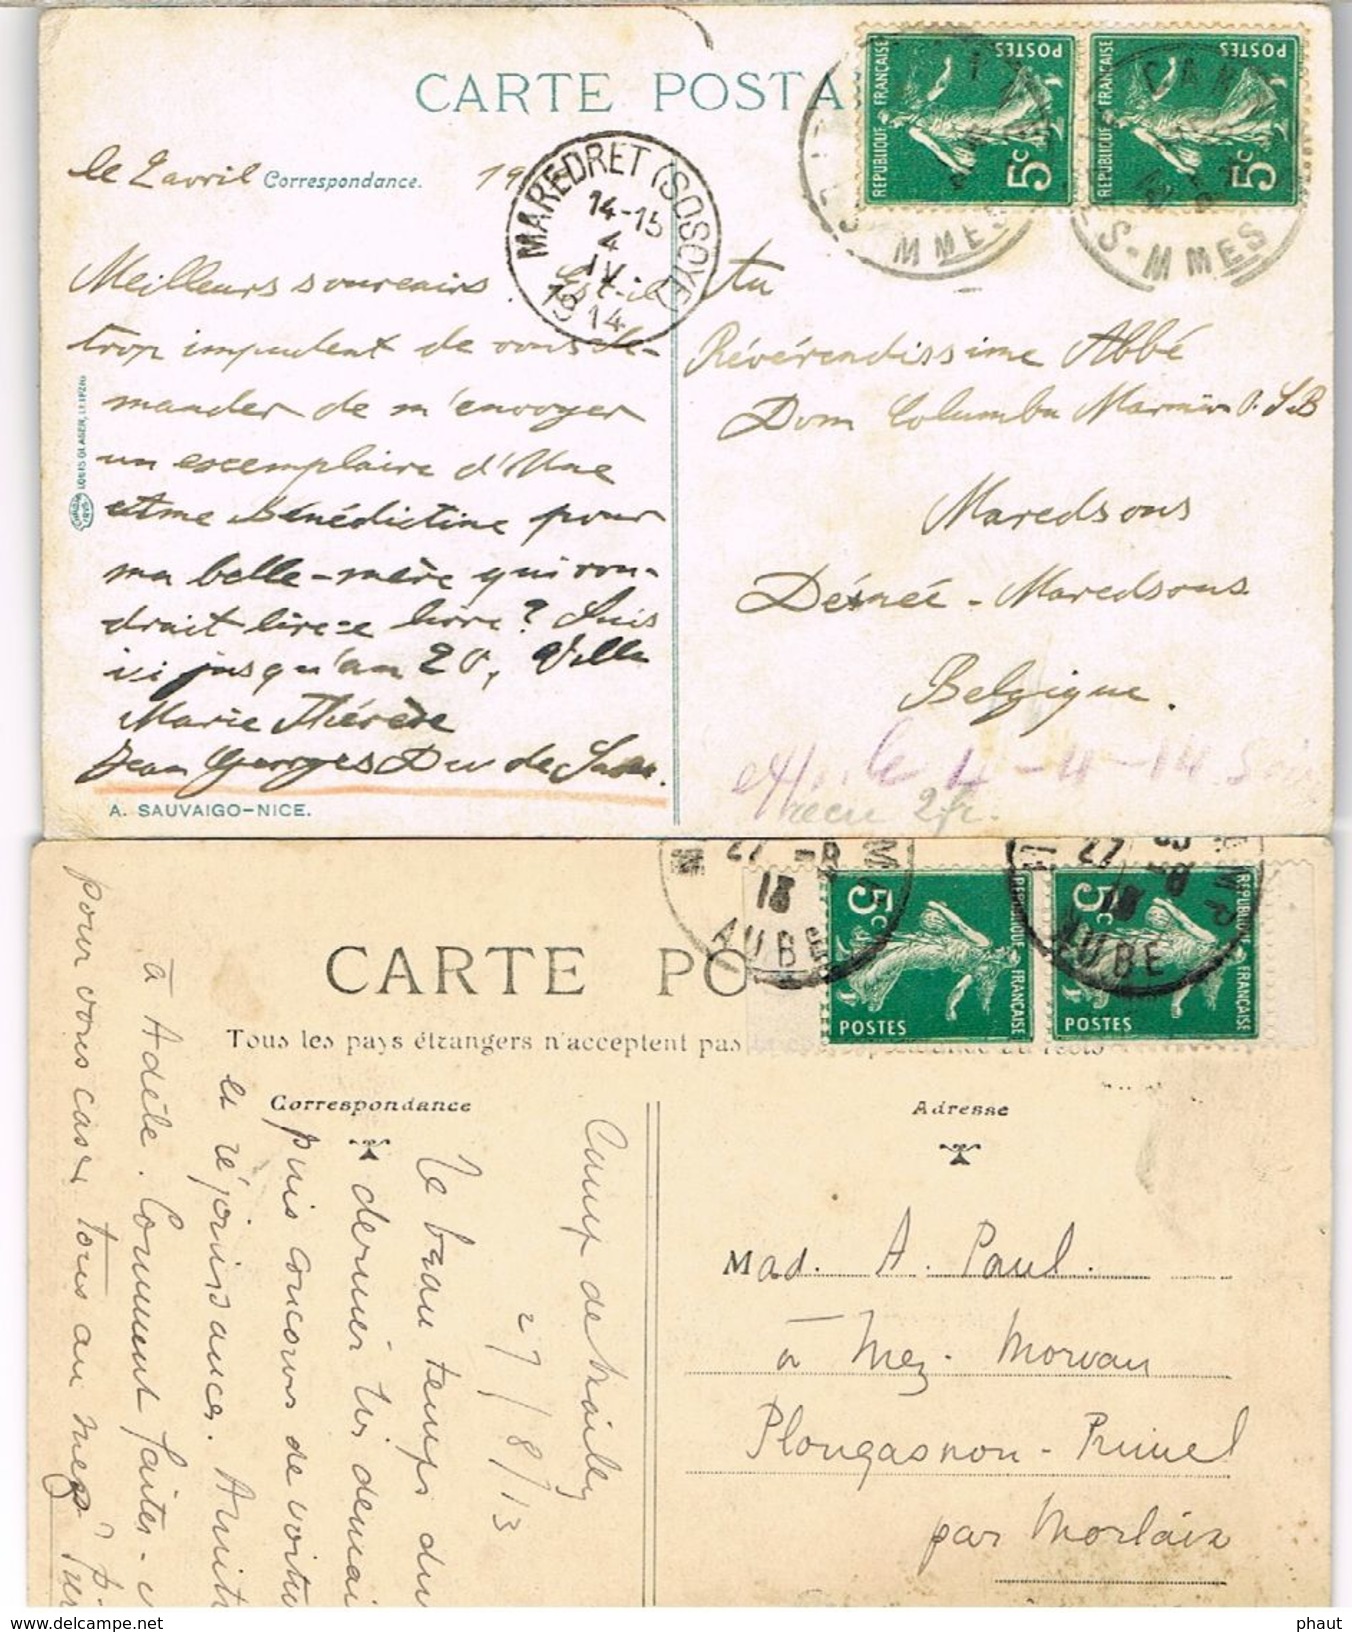 CARTE POSTA
le 2 avril Correspondance. 19
MAREDRET (SOSOYE)
14-15
4
IV
1914
REPUBLIQUE FRANÇAISE
POSTES
5c
REPUBLIQUE FRANÇAISE
POSTES
5c
MMES
ES-MMES
Meilleurs souvenirs. Est-il
trop impudent de vous de-
mander de m'envoyer
un exemplaire d'Une
âme Bénédictine pour
ma belle-mère qui vou-
drait lire ce livre? Suis
ici jusqu'au 20, Villa
Marie Thérèse
Jean Georges Duc de Saxe.
LOUIS GLASER, LEIPZIG
A. SAUVAIGO-NICE.
Révérendissime Abbé
Dom Columba Marmion O.S.B
Maredsous
Dénée - Maredsous
Belgique.
le 4-4-14
reçu 2fr.
27 -8
13
AUBE
27 -8
13
AUBE
5c
POSTES
REPUBLIQUE FRANÇAISE
5c
POSTES
REPUBLIQUE FRANÇAISE
CARTE PO
Tous les pays étrangers n'acceptent pas
Correspondance
Adresse
Camp de Mailly
27/8/13
Le beau temps du
dernier lis demai
puis concours de voitu
et réjouissances. Amit
à Adèle. Comment faites-v
pour vous caser tous au mez?
Mad. A. Paul.
à Mez-Morvan
Plougasnou-Primel
par Morlaix
www.delcampe.net
phaut